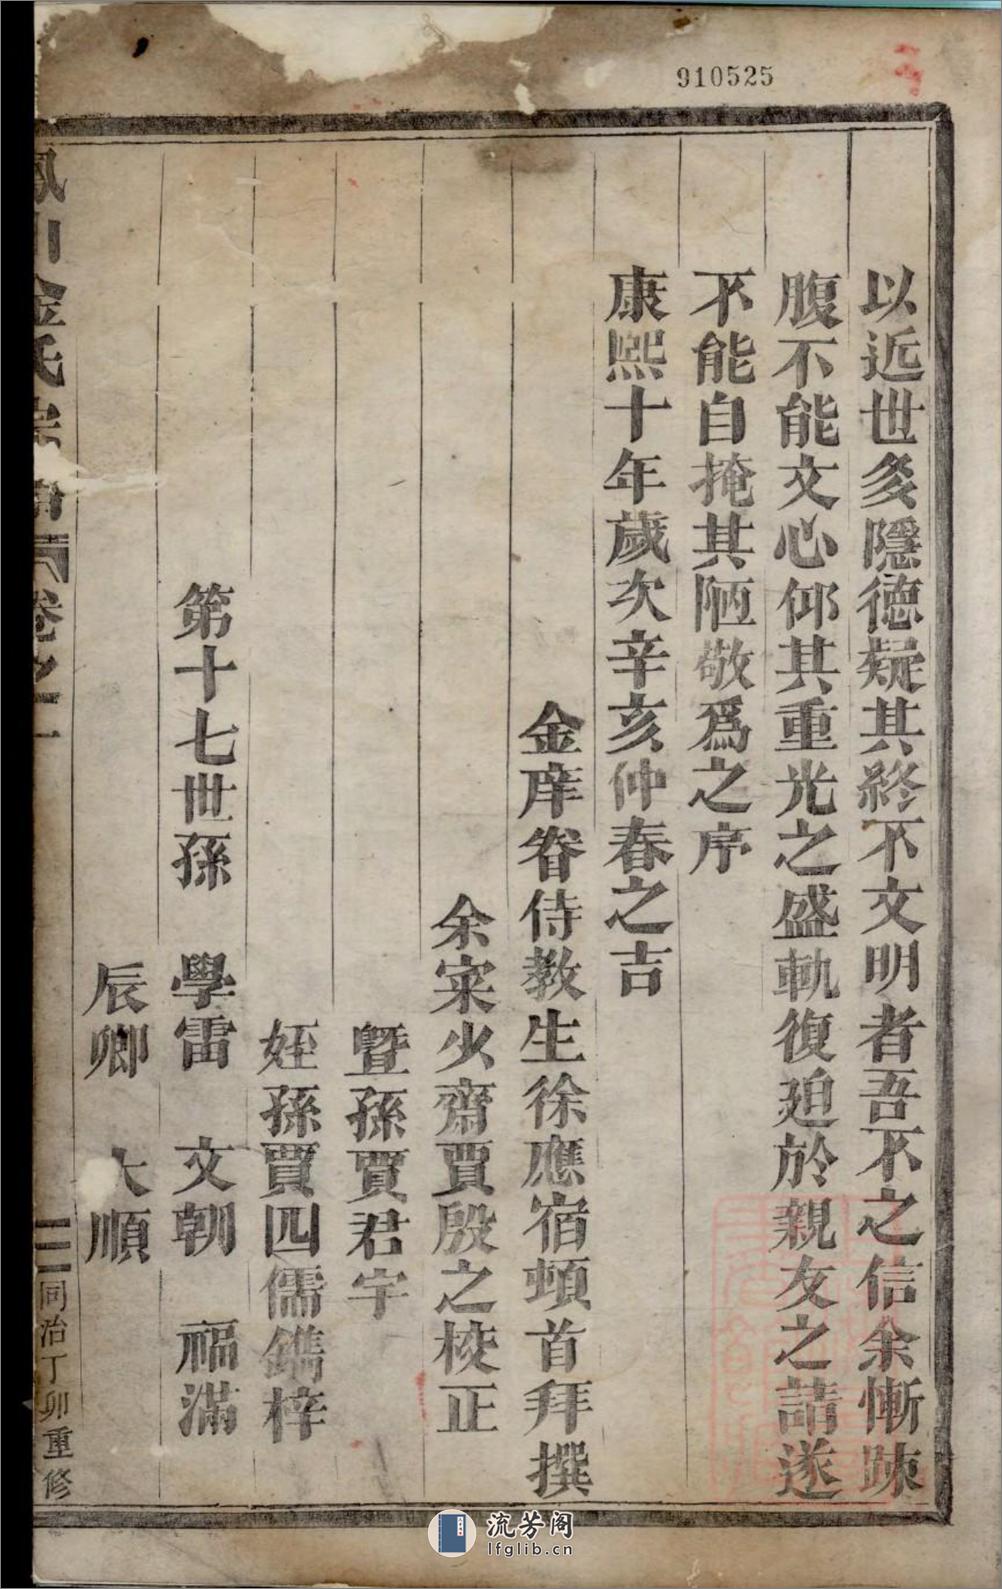 910525
以近世多隱德疑其終不文明者吾不之信余慚踈
腹不能文心仰其重光之盛軌復廹於親友之請遂
不能自掩其陋敬爲之序
康熙十年歲次辛亥仲春之吉
金庠眷侍教生徐應宿頓首拜撰
余寀火齋賈殷之校正
曁孫賈君宇
姪孫賈四儒鐫梓
第十七世孫 學雷 文朝 福滿
辰卿 大順
鳳山金氏宗 卷之一
三 同治丁卯重修
流芳阁
lfglib.cn